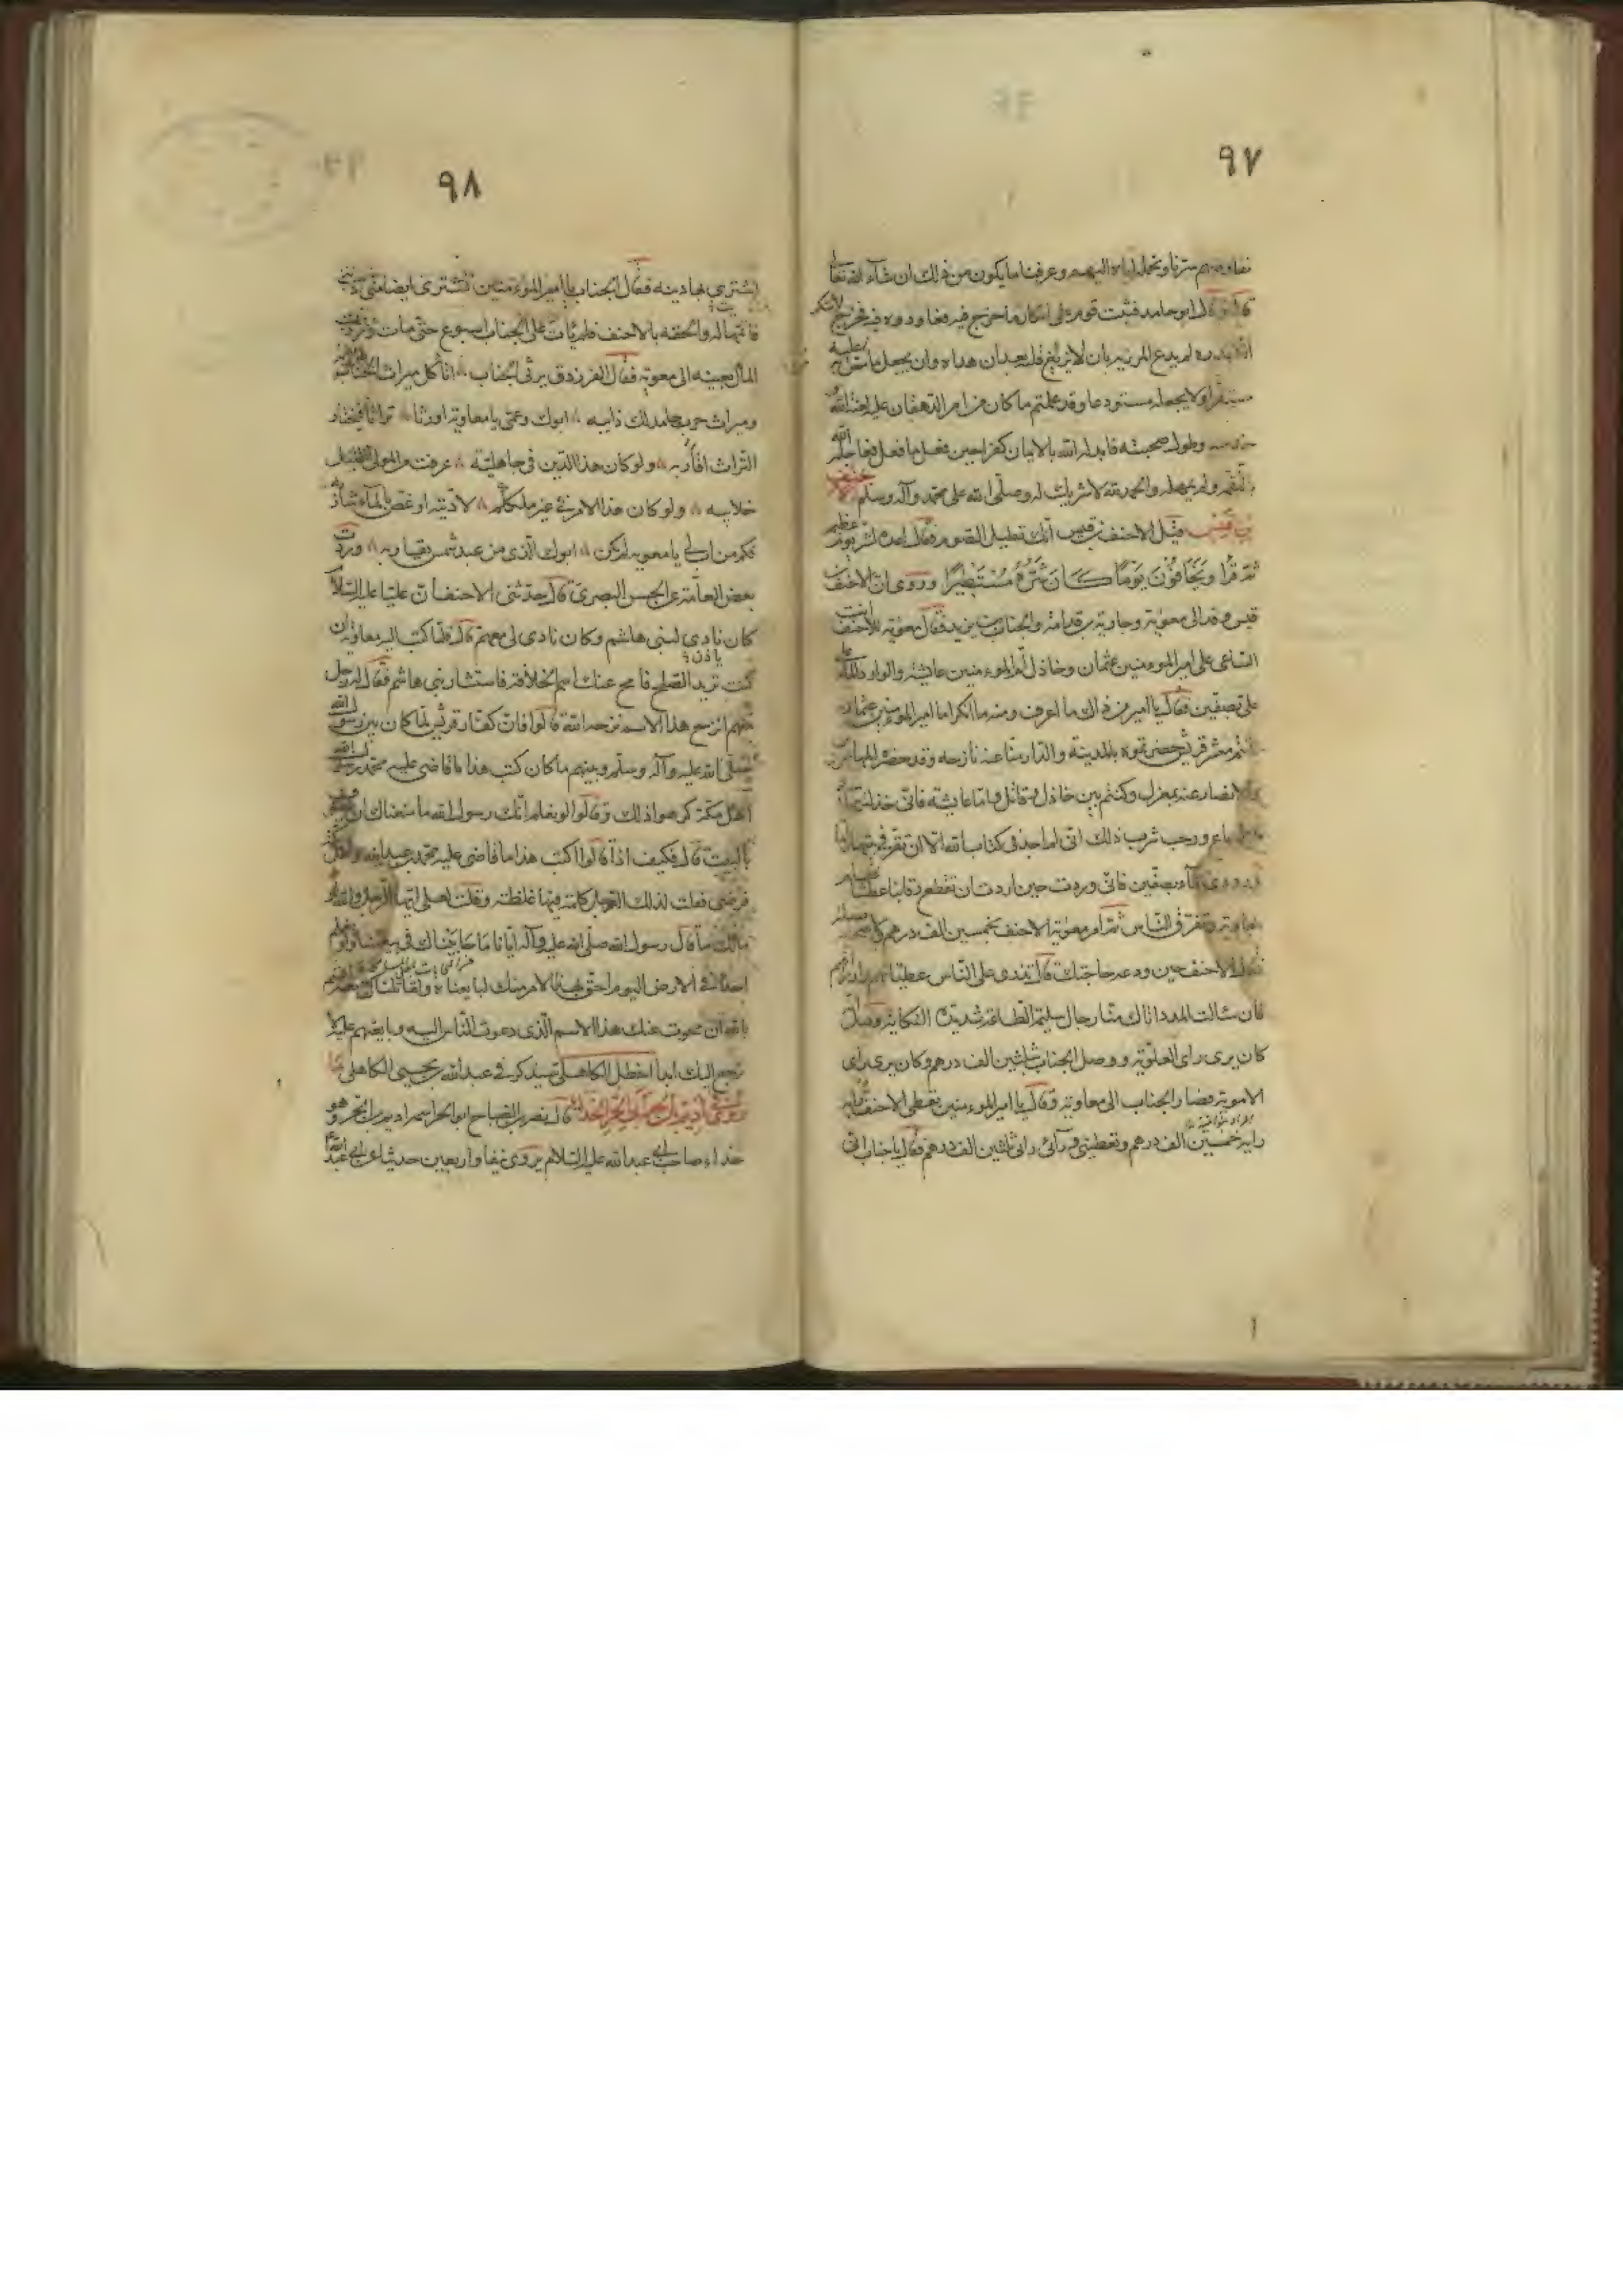 ٩٧
من ذلك ان شاء الله تعالى
قال ابو حامد فثبت قوم على انكار ما خرج فيه فعاودوه فيه فخرج لانكر
لم يدع المرزبان لا يزيغ قلبه بعد ان هداه وان يجعل ما من به عليه
مستقرا ولا يجعله مستودعا وقد علمتم ما كان من امر الدهقان عليه لعنة الله
وطول صحبته فابدله الله بالايمان كفرا حين فعل ما فعل فعاجله الله
بالنقمة ولم يمهله والحمد لله لا شريك له وصلى الله على محمد وآله وسلم الاحنف
بن قيس قيل للاحنف بن قيس انك تطيل الصوم فقال اعده لشر يوم عظيم
ثم قرأ ويخافون يوما كان شره مستطيرا وروى ان الاحنف بن
قيس وفد الى معوية وجارية بن قدامة والجناب بن يزيد فقال معوية للاحنف انت
الساعى على امير المؤمنين عثمان وخاذل ام المؤمنين عايشة والوارد الماء على
على بصفين فقال يا امير من ذاك ما اعرف ومنه ما انكر اما امير المؤمنين عثمان
فانتم معشر قريش حضرتموه بالمدينة والدار منا عنه نازحة وقد حضره المهاجرون
والانصار عنه بمعزل وكنتم بين خاذل وقاتل واما عايشة فانى خذلتها
فى طول باع ورحب شرب وذلك انى لم اجد فى كتاب الله الا ان تقر فى بيتها واما
ورودى الماء بصفين فانى وردت حين اردت ان تقطع رقابنا عطشا فقام
معاوية وتفرق الناس ثم امر معوية للاحنف بخمسين الف درهم ولاصحابه بصلة
فقال للاحنف حين ودعه حاجتك قال تدر على الناس عطياتهم وارزاقهم
فان سئالت المدد اتاك منا رجال سليمة الطاعة شديدة النكاية وقيل انه
كان يرى راى العلوية ووصل الجناب بثلثين الف درهم وكان يرى راى
الاموية فصار الجناب الى معاوية وقال يا امير المؤمنين تعطى الاحنف ورايه
رايه خمسين الف درهم وتعطينى ورائى رائى ثلثين الف درهم فقال يا جناب انى
٩٨
اشترى بها دينه فقال الجناب يا امير المؤمنين تشترى ايضا منى دينى
فاتمها له والحقه بالاحنف فلم يأت على الجناب اسبوع حتى مات وردت
المال بعينه الى معوية فقال الفرزدق يرثى الجناب اتأكل ميراث الجناب
وميراث حرب جامد لك ذائبه ابوك وعمى يا معاوية اورثا تراثا فيختار
التراث اقاربه ولو كان هذا الدين فى جاهلية عرفت من المولى القليل
خلايبه ولو كان هذا الامر فى غير ملككم لاديته او غص بالماء شاربه
فكم من اب لى يا معوية لم يكن ابوك الذى من عبد شمس يقاربه وروت
بعض العامة عن الحسن البصرى قال حدثنى الاحنف ان عليا عليه السلام
كان يأذن لبنى هاشم وكان يأذن لى معهم قال فلما كتب اليه معاوية ان
كنت تريد الصلح فامح عنك اسم الخلافة فاستشار بنى هاشم فقال له رجل
منهم انزح هذا الاسم نزحه الله قالوا فان كفار قريش لما كان بين رسول الله
صلى الله عليه وآله وسلم وبينهم ما كان كتب هذا ما قاضى عليه محمد رسول الله
اهل مكة كرهوا ذلك وقالوا لو نعلم انك رسول الله ما منعناك ان تطوف
بالبيت قال فكيف اذا قالوا اكتب هذا ما قاضى عليه محمد بن عبد الله واهل مكة
فرضى فقلت لذلك الرجل كلمة فيها غلظة وقلت لعلى ايها الرجل والله
مالك ما قال رسول الله صلى الله عليه وآله انا ما حابيناك فى بيعتنا ولو نعلم
احدا فى الارض اليوم احق بهذا الامر منك لبايعناه ولقاتلناك معه اقسم
بالله ان محوت عنك هذا الاسم الذى دعوت الناس اليه وبايعتهم عليه لا
ترجع اليك ابدا اخطل الكاهلى سيذكر فى عبد الله بن يحيى الكاهلى ما
روى فى اديم بن الحر ابى الحر الحذاء قال نصر بن الصباح ابو الحر اسمه اديم بن الحر وهو
حذاء صاحب ابى عبد الله عليه السلام يروى نيفا واربعين حديثا عن ابى عبد الله